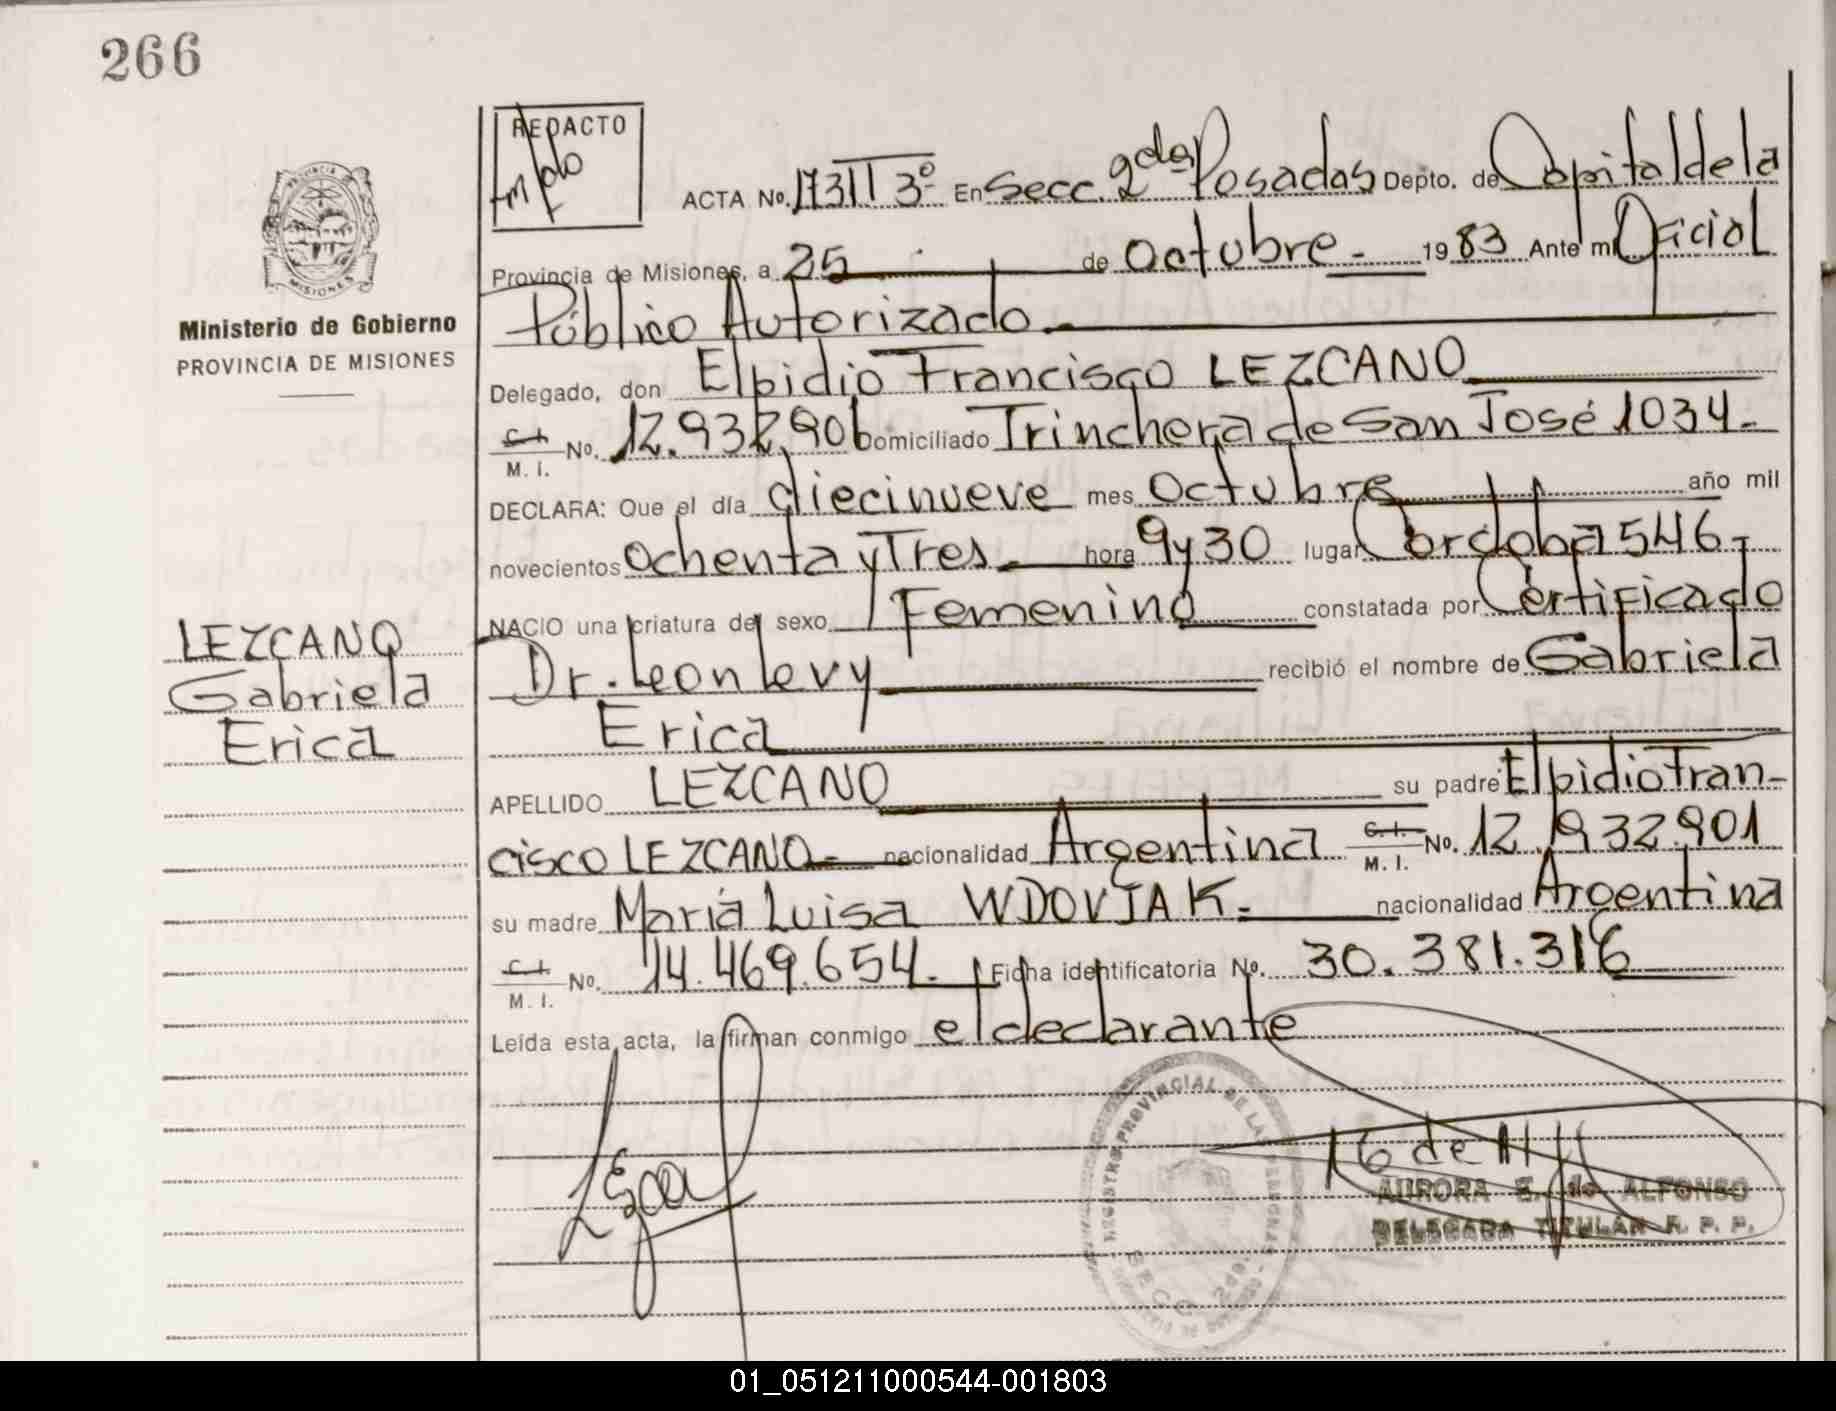 266
REDACTO
ACTA No. 1731 T 3º En Secc. 2da Posadas Depto. de Capital de la
Provincia de Misiones, a 25 de Octubre - 1983 Ante mi Oficial
Público Autorizado
Delegado, don Elpidio Francisco LEZCANO
C. I. / M. I. No. 12.932.901 Domiciliado Trinchera de San José 1034.
DECLARA: Que el día diecinueve mes Octubre año mil
novecientos ochenta y Tres hora 9 y 30 lugar Cordoba 546
NACIO una criatura del sexo Femenino constatada por Certificado
Dr. Leon Levy recibió el nombre de Gabriela
Erica
APELLIDO LEZCANO su padre Elpidio Fran-
cisco LEZCANO nacionalidad Argentina C. I. / M. I. No. 12.932.901
su madre María Luisa WDOVIAK. nacionalidad Argentina
C. I. / M. I. No. 14.469.654. Ficha identificatoria No. 30.381.316
Leída esta acta, la firman conmigo el declarante
16 de
AURORA E. de ALFONSO
DELEGADA TITULAR R. P. P.
REGISTRO PROVINCIAL DE LAS PERSONAS
SECC. 2da.
PROVINCIA DE
MISIONES
Ministerio de Gobierno
PROVINCIA DE MISIONES
LEZCANO
Gabriela
Erica
01_051211000544-001803